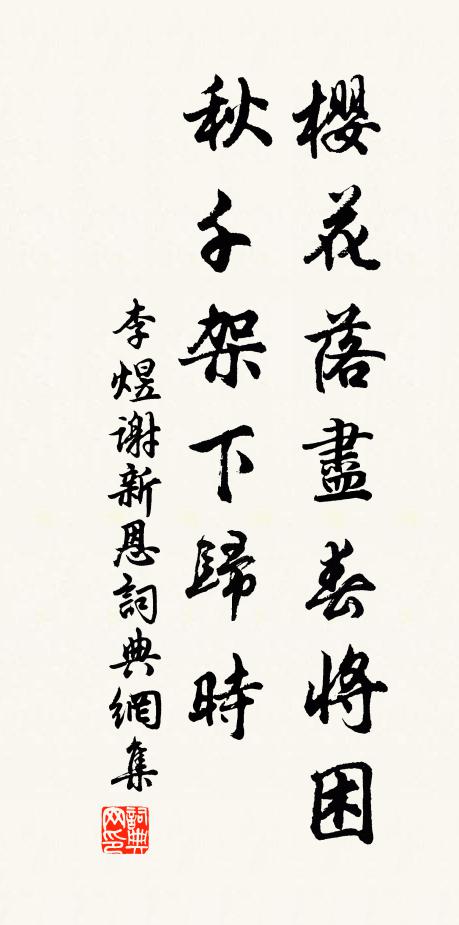 櫻花落盡春將困
秋千架下歸時
李煜謝新恩詞典網集
詞典网印